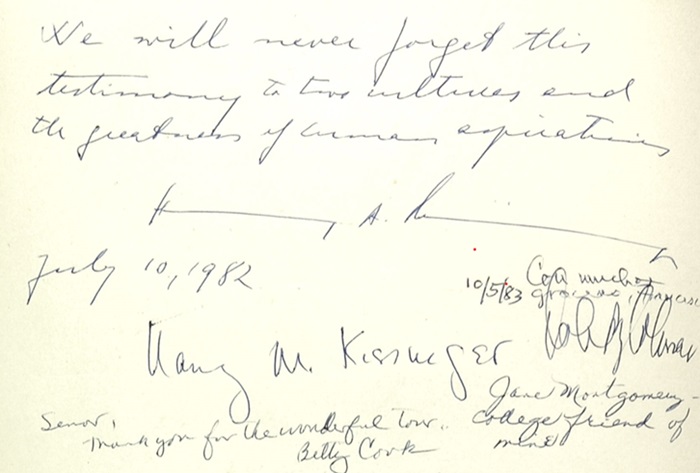 We will never forget this
testimony to two cultures and
the greatness of human aspirations
Henry A. Kissinger
July 10, 1982
10/5/83 Con muchas
gracias, Francisco
Nancy M. Kissinger
Jane Montgomery -
college friend of
mine
Senor,
Thank you for the wonderful tour.
Betty Cook